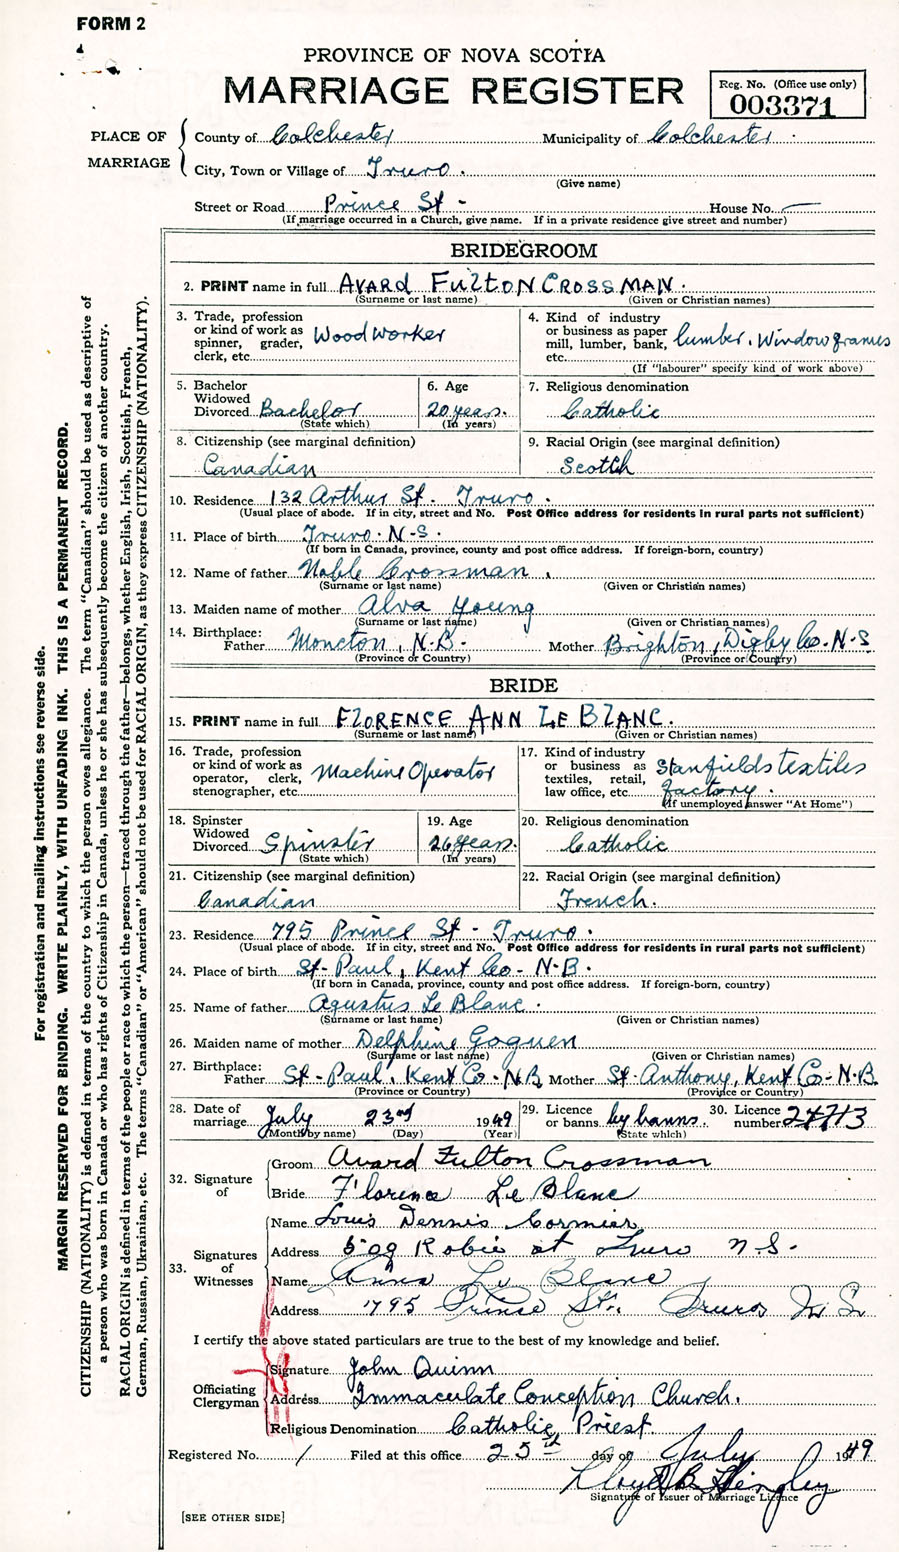 FORM 2
PROVINCE OF NOVA SCOTIA
MARRIAGE REGISTER
Reg. No. (Office use only)
003371
PLACE OF MARRIAGE
County of Colchester Municipality of Colchester
City, Town or Village of Truro.
(Give name)
Street or Road Prince St - House No. —
(If marriage occurred in a Church, give name. If in a private residence give street and number)
BRIDEGROOM
2. PRINT name in full AVARD FULTON CROSSMAN.
(Surname or last name) (Given or Christian names)
3. Trade, profession or kind of work as spinner, grader, clerk, etc. Woodworker
4. Kind of industry or business as paper mill, lumber, bank, etc. lumber. Window frames
(If "labourer" specify kind of work above)
5. Bachelor Widowed Divorced Bachelor
(State which)
6. Age 20 years.
(In years)
7. Religious denomination
Catholic
8. Citizenship (see marginal definition)
Canadian
9. Racial Origin (see marginal definition)
Scotch
10. Residence 132 Arthur St. Truro.
(Usual place of abode. If in city, street and No. Post Office address for residents in rural parts not sufficient)
11. Place of birth Truro. N-S.
(If born in Canada, province, county and post office address. If foreign-born, country)
12. Name of father Noble Crossman.
(Surname or last name) (Given or Christian names)
13. Maiden name of mother Alva Young
(Surname or last name) (Given or Christian names)
14. Birthplace: Father Moncton, N.B. Mother Brighton, Digby Co. N-S
(Province or Country) (Province or Country)
BRIDE
15. PRINT name in full FLORENCE ANN LE BLANC.
(Surname or last name) (Given or Christian names)
16. Trade, profession or kind of work as operator, clerk, stenographer, etc. Machine Operator
17. Kind of industry or business as textiles, retail, law office, etc. Stanfields textiles factory.
(If unemployed answer "At Home")
18. Spinster Widowed Divorced Spinster
(State which)
19. Age 26 years.
(In years)
20. Religious denomination
Catholic
21. Citizenship (see marginal definition)
Canadian
22. Racial Origin (see marginal definition)
French.
23. Residence 795 Prince St - Truro.
(Usual place of abode. If in city, street and No. Post Office address for residents in rural parts not sufficient)
24. Place of birth St- Paul, Kent Co- N-B.
(If born in Canada, province, county and post office address. If foreign-born, country)
25. Name of father Agustus Le Blanc.
(Surname or last name) (Given or Christian names)
26. Maiden name of mother Delphine Goguen
(Surname or last name) (Given or Christian names)
27. Birthplace: Father St- Paul, Kent Co- N-B Mother St. Anthony, Kent Co- N-B.
(Province or Country) (Province or Country)
28. Date of marriage July 23rd 1949
(Month by name) (Day) (Year)
29. Licence or banns by banns.
(State which)
30. Licence number 24713
32. Signature of
Groom Avard Fulton Crossman
Bride Florence Le Blanc
33. Signatures of Witnesses
Name Louis Dennis Cormier
Address 509 Robie st Truro N-S-
Name Anna Le Blanc
Address 795 Prince St. Truro N S
I certify the above stated particulars are true to the best of my knowledge and belief.
Officiating Clergyman
Signature John Quinn
Address Immaculate Conception Church.
Religious Denomination Catholic Priest
Registered No. 1 Filed at this office 25th day of July 1949
Lloyd B
Signature of Issuer of Marriage Licence
[SEE OTHER SIDE]
For registration and mailing instructions see reverse side.
MARGIN RESERVED FOR BINDING. WRITE PLAINLY, WITH UNFADING INK. THIS IS A PERMANENT RECORD.
CITIZENSHIP (NATIONALITY) is defined in terms of the country to which the person owes allegiance. The term "Canadian" should be used as descriptive of
a person who was born in Canada or who has rights of Citizenship in Canada, unless he or she has subsequently become the citizen of another country.
RACIAL ORIGIN is defined in terms of the people or race to which the person—traced through the father—belongs, whether English, Irish, Scottish, French,
German, Russian, Ukrainian, etc. The terms "Canadian" or "American" should not be used for RACIAL ORIGIN, as they express CITIZENSHIP (NATIONALITY).